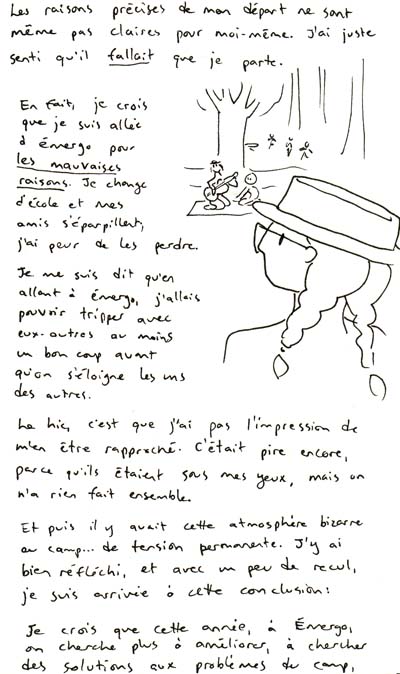 Les raisons précises de mon départ ne sont
même pas claires pour moi-même. J'ai juste
senti qu'il fallait que je parte.
En fait, je crois
que je suis allée
à émergo pour
les mauvaises
raisons. Je change
d'école et mes
amis s'éparpillent,
j'ai peur de les perdre.
Je me suis dit qu'en
allant à émergo, j'allais
pouvoir tripper avec
eux-autres au moins
un bon coup avant
qu'on s'éloigne les uns
des autres.
Le hic, c'est que j'ai pas l'impression de
m'en être rapproché. C'était pire encore,
parce qu'ils étaient sous mes yeux, mais on
n'a rien fait ensemble.
Et puis il y avait cette atmosphère bizarre
au camp... de tension permanente. J'y ai
bien réfléchi, et avec un peu de recul,
je suis arrivée à cette conclusion:
Je crois que cette année, à Émergo,
on cherche plus à améliorer, à chercher
des solutions aux problèmes du camp,